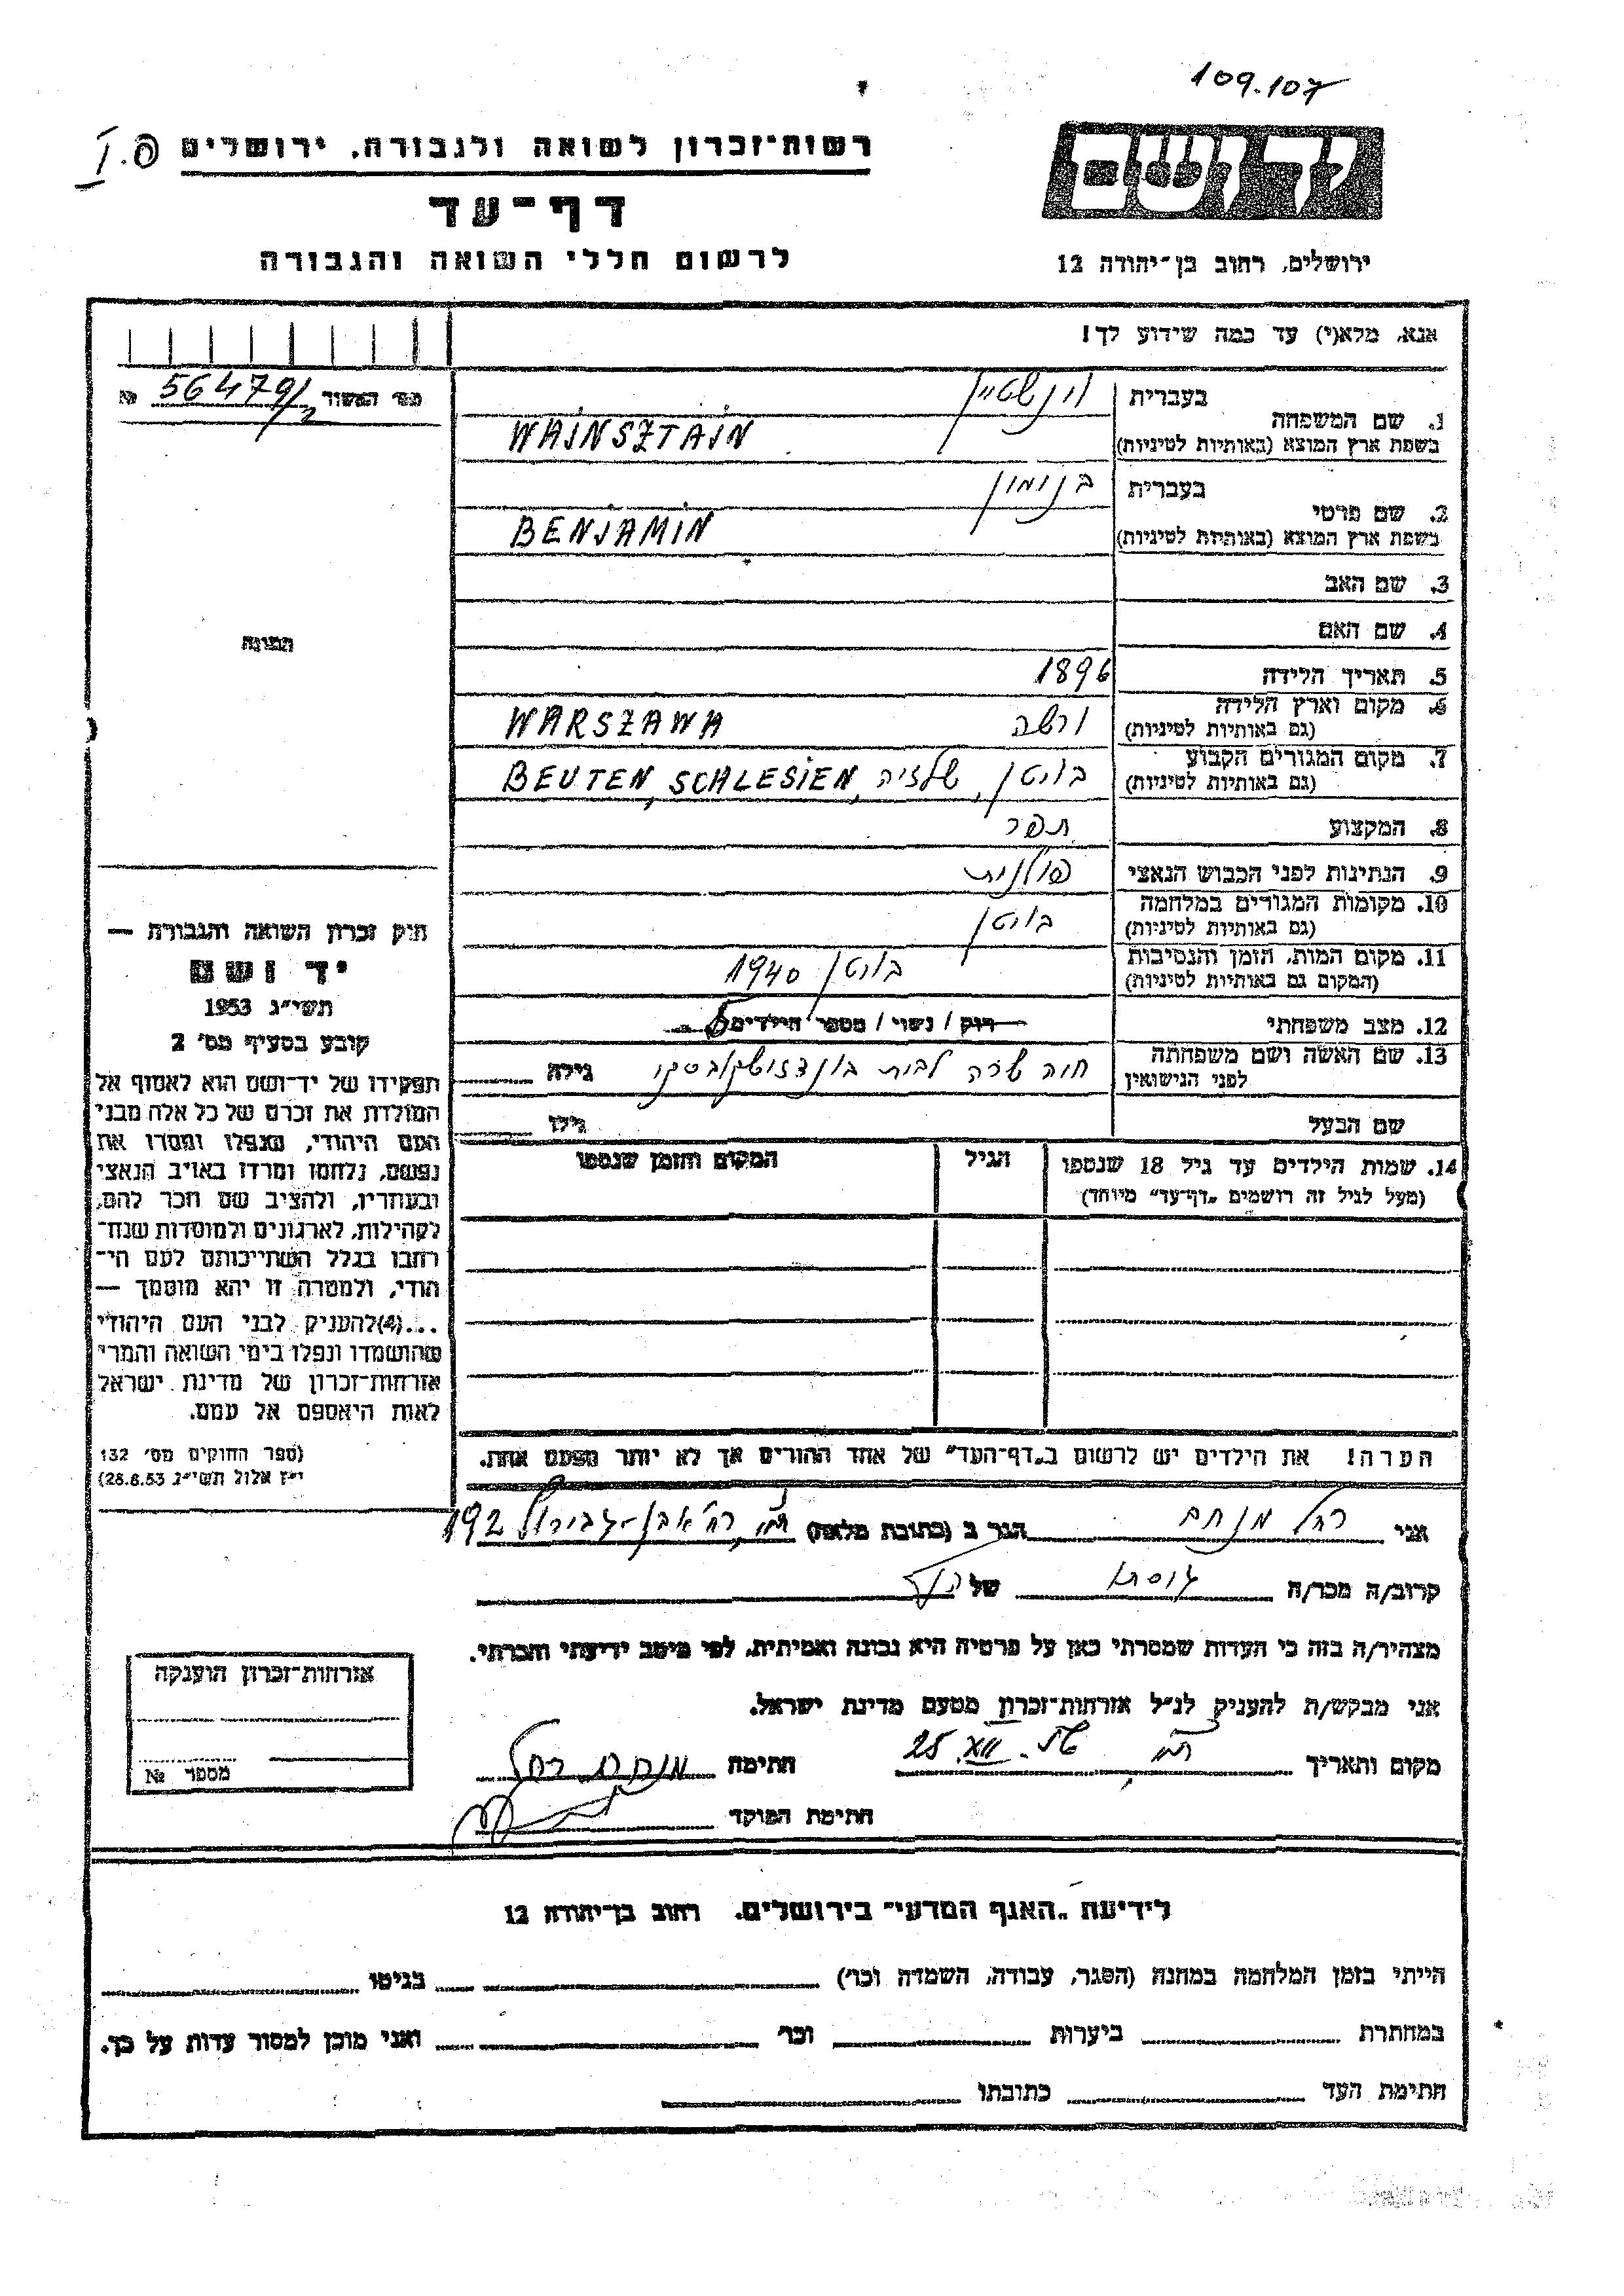 109.107
ידושם
ירושלים, רחוב בן־יהודה 12
רשות־זכרון לשואה ולגבורה, ירושלים
דף־עד
לרשום חללי השואה והגבורה
אנא, מלא(י) עד כמה שידוע לך!
מס׳ האשור № 56479/2
1. שם המשפחה
בעברית וינשטיין
בשפת ארץ המוצא (באותיות לטיניות) WAINSZTAIN
2. שם פרטי
בעברית בנימין
בשפת ארץ המוצא (באותיות לטיניות) BENJAMIN
3. שם האב
4. שם האם
תמונה
5. תאריך הלידה 1896
6. מקום וארץ הלידה
(גם באותיות לטיניות) ורשה WARSZAWA
7. מקום המגורים הקבוע
(גם באותיות לטיניות) בויטן, שלזיה, BEUTEN, SCHLESIEN
8. המקצוע תפר
9. הנתינות לפני הכבוש הנאצי פולנית
10. מקומות המגורים במלחמה
(גם באותיות לטיניות) בויטן
11. מקום המות, הזמן והנסיבות
(המקום גם באותיות לטיניות) בויטן 1940
12. מצב משפחתי רוק / נשוי / מספר הילדים
13. שם האשה ושם משפחתה
לפני הנישואין חיה שרה לבית גילה
שם הבעל גילו
14. שמות הילדים עד גיל 18 שנספו הגיל המקום והזמן שנספו
(מעל לגיל זה רושמים „דף־עד״ מיוחד)
הערה! את הילדים יש לרשום ב„דף־העד״ של אחד ההורים אך לא יותר מפעם אחת.
חוק זכרון השואה והגבורה —
יד ושם
תשי״ג 1953
קובע בסעיף מס׳ 2
תפקידו של יד־ושם הוא לאסוף אל
המולדת את זכרם של כל אלה מבני
העם היהודי, שנפלו ומסרו את
נפשם, נלחמו ומרדו באויב הנאצי
ובעוזריו, ולהציב שם וזכר להם,
לקהילות, לארגונים ולמוסדות שנח־
רבו בגלל השתייכותם לעם הי־
הודי, ולמטרה זו יהא מוסמך —
...(4)להעניק לבני העם היהודי
שהושמדו ונפלו בימי השואה והמרי
אזרחות־זכרון של מדינת ישראל
לאות היאספם אל עמם.
(ספר החוקים מס׳ 132
י״ז אלול תשי״ג 28.8.53)
אני רחל מנחם הגר ב (כתובת מלאה) ת״א, רח׳ אבן-גבירול 192
קרוב/ה מכר/ה גיסתו של הנ״ל
מצהיר/ה בזה כי העדות שמסרתי כאן על פרטיה היא נכונה ואמיתית, לפי מיטב ידיעתי והכרתי.
אני מבקש/ת להעניק לנ״ל אזרחות־זכרון מטעם מדינת ישראל.
מקום ותאריך ת״א 25.XII. חתימה מנחם רחל
חתימת הפוקד
אזרחות־זכרון הוענקה
מספר №
לידיעת „האגף המדעי״ בירושלים, רחוב בן־יהודה 12
הייתי בזמן המלחמה במחנה (הסגר, עבודה, השמדה וכו׳) בגיטו
במחתרת ביערות וכו׳ ואני מוכן למסור עדות על כך.
חתימת העד כתובתו